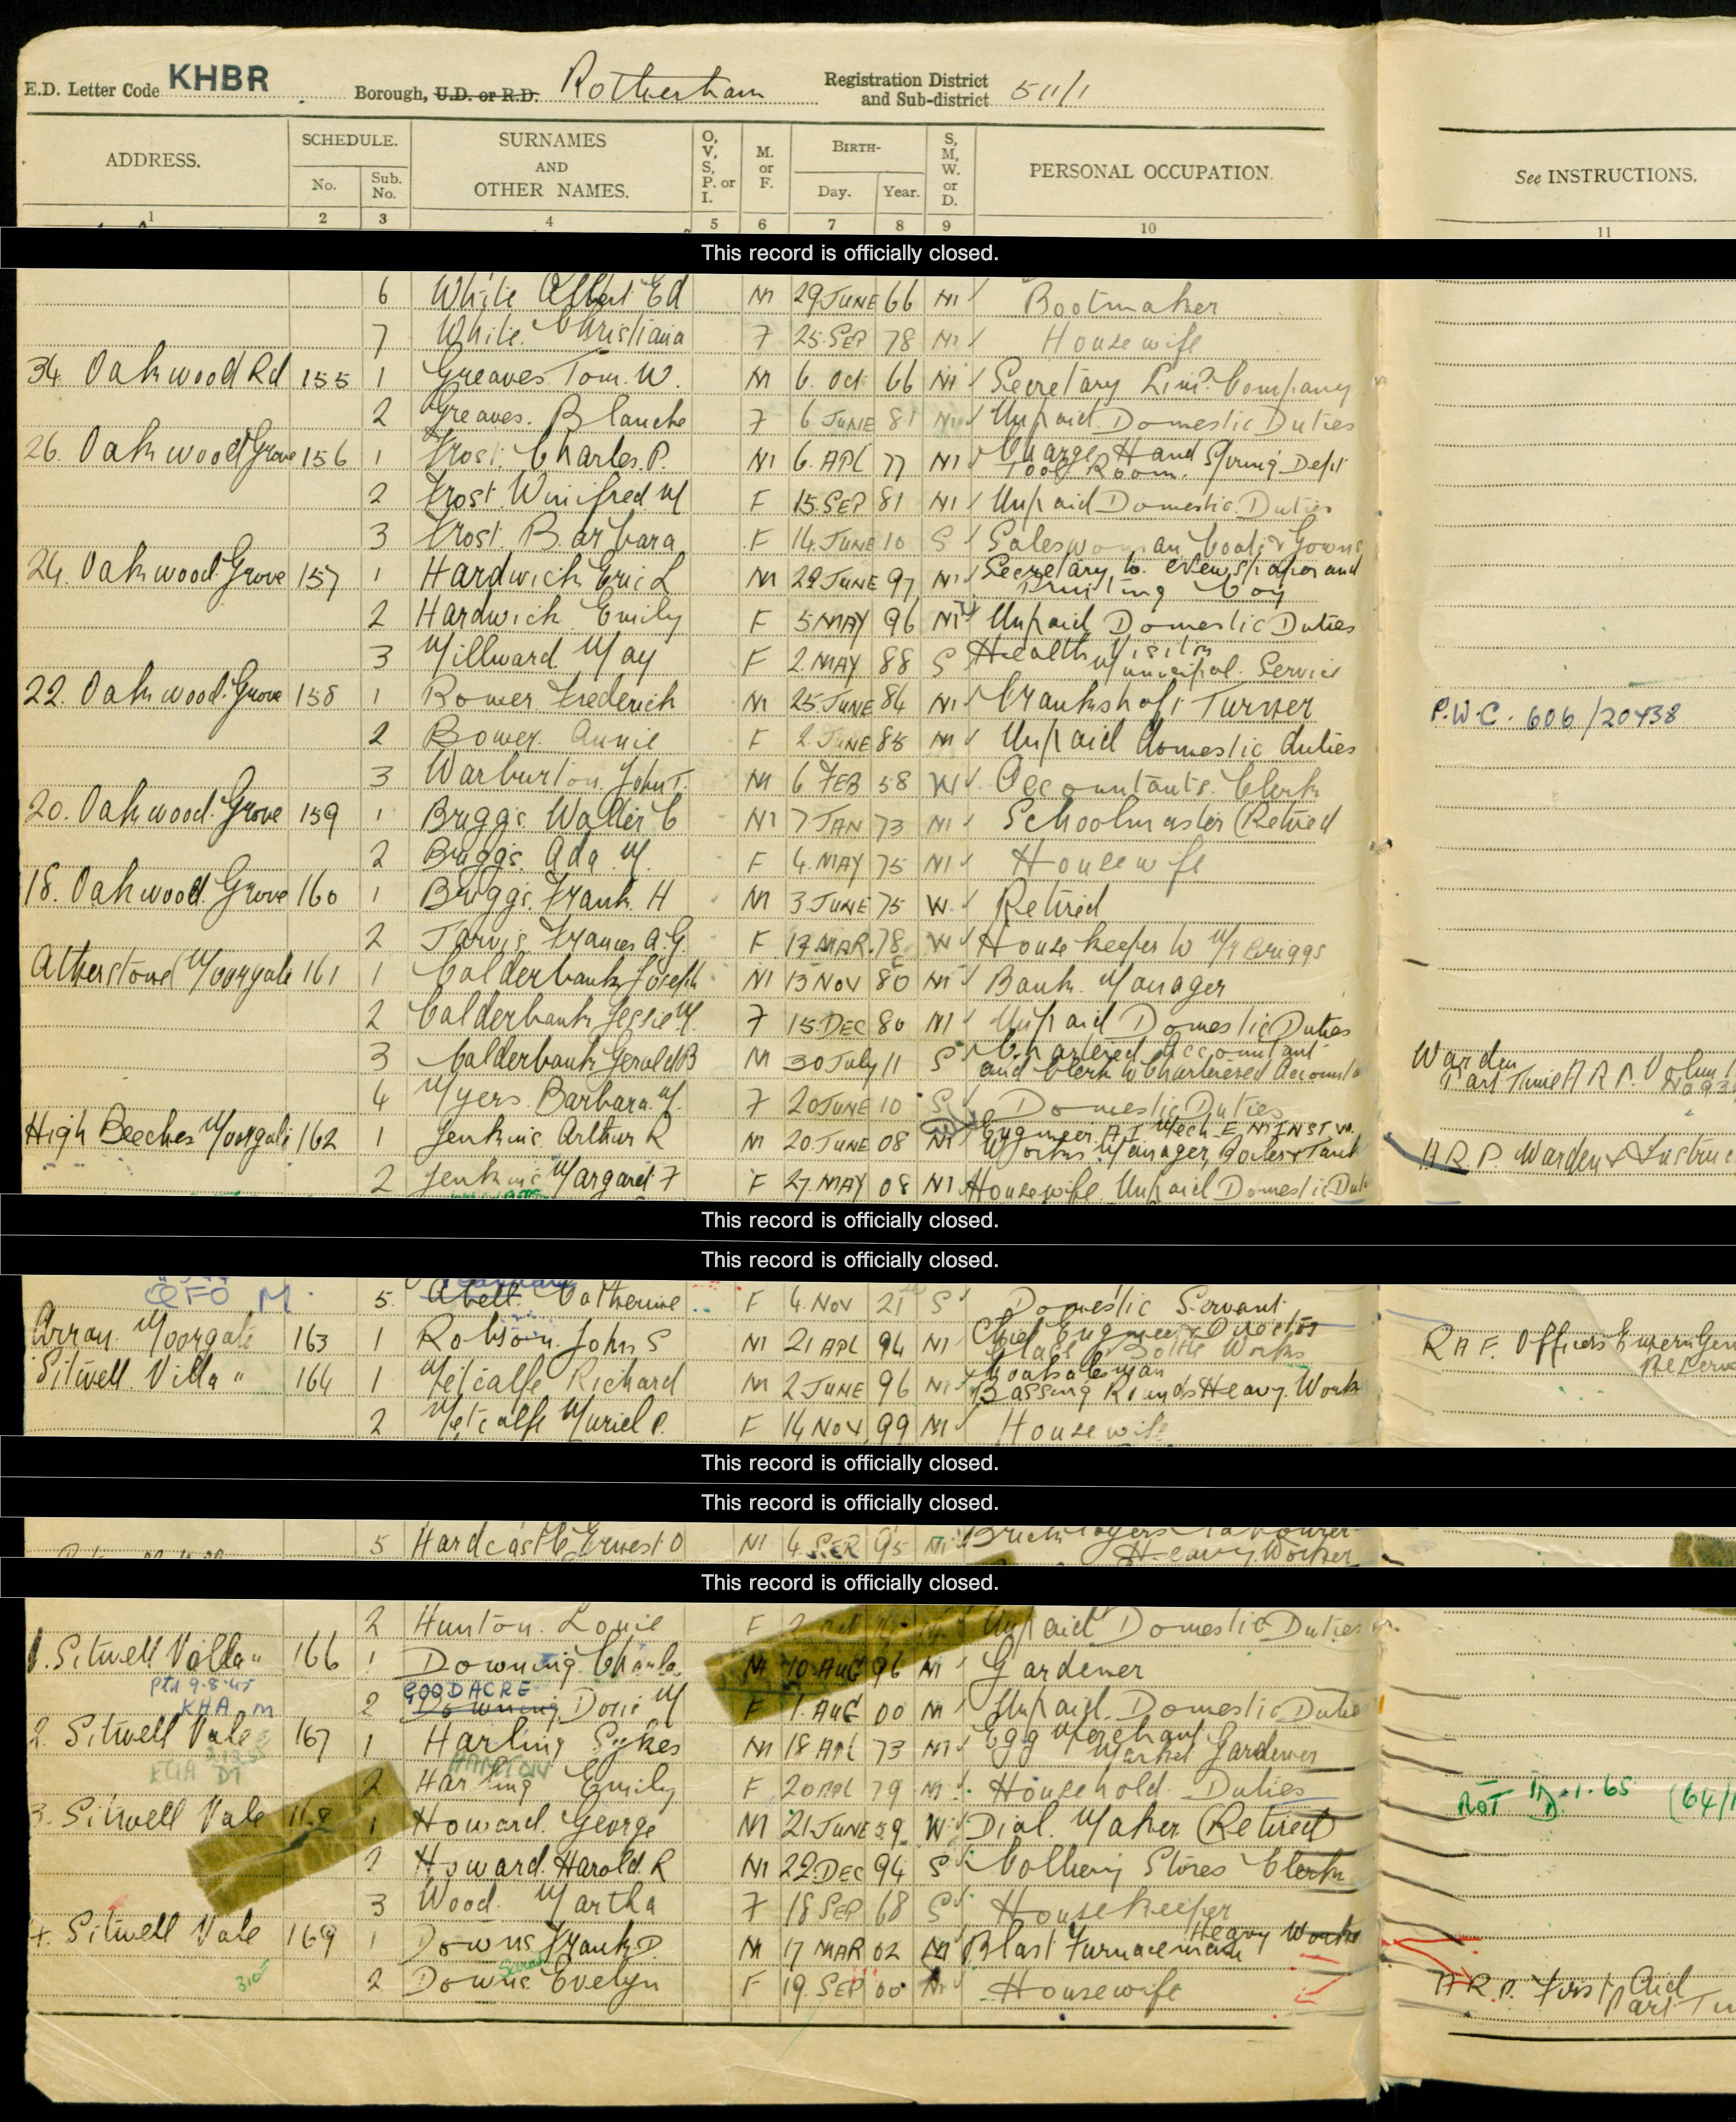 E.D. Letter Code KHBR Borough, U.D. or R.D. Rotherham Registration District and Sub-district 511/1
ADDRESS. SCHEDULE. No. Sub. No. SURNAMES AND OTHER NAMES. O, V, S, P. or I. M. or F. BIRTH- Day. Year. S, M, W. or D. PERSONAL OCCUPATION. See INSTRUCTIONS.
1 2 3 4 5 6 7 8 9 10 11
This record is officially closed.
6 White Albert Ed M 29 JUNE 66 M Bootmaker
7 White Christiana F 25 SEP 78 M Housewife
34. Oakwood Rd 155 1 Greaves Tom. W. M 6. Oct 66 M Secretary Lim. Company
2 Greaves. Blanche F 6 JUNE 81 M Unpaid Domestic Duties
26. Oakwood Grove 156 1 Frost. Charles. P. M 6. APL 77 M Charge Hand Spring Dept
Tool Room.
2 Frost Winifred M F 15 SEP 81 M Unpaid Domestic Duties
3 Frost. Barbara F 14 JUNE 10 S Saleswoman Coats & Gowns
24. Oakwood Grove 157 1 Hardwick Eric L M 29 JUNE 97 M Secretary to Newspaper and
Printing Coy
2 Hardwick Emily F 5 MAY 96 M Unpaid Domestic Duties
3 Millward. May F 2. MAY 88 S Health Visitor
Municipal. Service
22. Oakwood Grove 158 1 Bower Frederick M 25 JUNE 84 M Crankshaft Turner P.W.C. 606/20438
2 Bower. Annie F 2 JUNE 85 M Unpaid domestic duties
3 Warburton John T. M 6 FEB 58 W Accountants. Clerk
20. Oakwood. Grove 159 1 Briggs. Walter C M 7 JAN 73 M Schoolmaster (Retired
2 Briggs. Ada M. F 4. MAY 75 M Housewife
18. Oakwood. Grove 160 1 Briggs. Frank. H M 3 JUNE 75 W. Retired
2 Jarvis Frances A.G. F 17 MAR. 78 W House keeper to Mr Briggs
Atherstone Moorgate 161 1 Calderbank Joseph M 13 NOV 80 M Bank. Manager
2 Calderbank Jessie M. F 15. DEC 80 M Unpaid Domestic Duties
3 Calderbank Gerald B M 30 July 11 S Chartered Accountant
and Clerk to Chartered Accounta Warden
Part Time A R P. Volun
4 Myers Barbara. M. F 20 JUNE 10 S Domestic Duties
High Beeches Moorgate 162 1 Jenkins. Arthur R M 20 JUNE 08 M Engineer A I Mech. E M INST W.
Works Manager, Boiler & Tank A.R.P. Warden & Instruc
2 Jenkins Margaret F F 27 MAY 08 M Housewife Unpaid Domestic Dut
This record is officially closed.
This record is officially closed.
QFO M.
5. Abell Catherine F 4. NOV 21 S Domestic Servant
Arran. Moorgate 163 1 Robson. John S M 21 APL 94 M Chief Engineer & Director
Glass Bottle Works R A F. Officers Emergen
Reserve
Sitwell Villa " 164 1 Metcalfe Richard M 2 JUNE 96 M
Heavy. Work
2 Metcalfe Muriel P. F 14 NOV 99 M Housewife
This record is officially closed.
This record is officially closed.
5 Hardcastle Ernest O M 4 SEP 95 M Bricklayers Labourer
Heavy Worker
This record is officially closed.
2 Hunton. Louie F Unpaid Domestic Duties
1. Sitwell Villa " 166 1 Downing. Charles M 10 AUG 96 M Gardener
GOODACRE
2 Downing. Doris M F 1. AUG 00 M Unpaid. Domestic Duties
KHA m
2. Sitwell Vale 167 1 Harling Sykes M 18 APL 73 M Egg Merchant
Market Gardener
HAMPTON
2 Harling Emily F 20 APL 79 M Household Duties ROT 1.65 (64/
3. Sitwell Vale 168 1 Howard. George M 21 JUNE 59 W Dial. Maker (Retired)
2 Howard. Harold. R M 22. DEC 94 S Colliery Stores Clerk
3 Wood. Martha F 18 SEP 68 S Housekeeper
4. Sitwell Vale 169 1 Downs Frank D. M 17 MAR 02 M Blast Furnaceman Heavy Worker
2 Downs Evelyn F 19. SEP 00 M Housewife A R P. First Aid
Part Tim